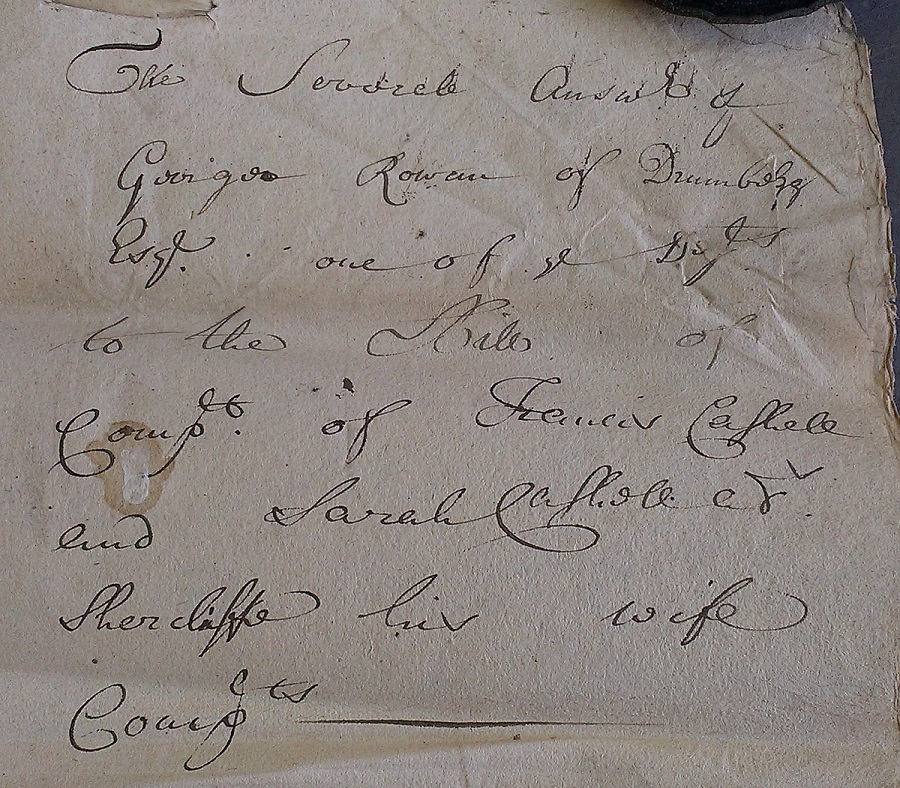 The Severell Answr of
George Rowan of Drumbegg
Esqr. one of ye Defts
to the Bill of
Complt. of Francis Cashell
and Sarah Cashell als
Shercliffe his wife
Complts